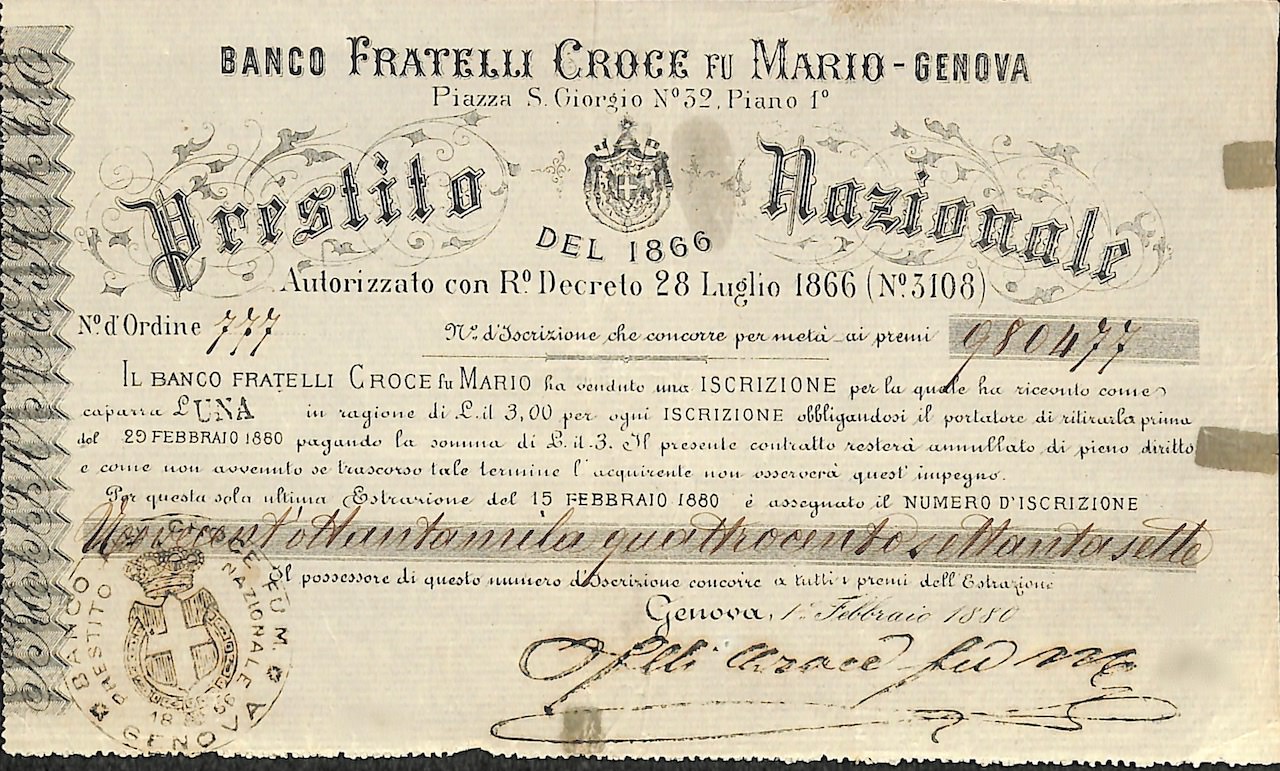 BANCO FRATELLI CROCE FU MARIO - GENOVA
Piazza S. Giorgio Nº 32, Piano 1º
Prestito Nazionale
DEL 1866
Autorizzato con Rº Decreto 28 Luglio 1866 (Nº 3108)
Nº d'Ordine 777 Nº d'Iscrizione che concorre per metà ai premi 980477
IL BANCO FRATELLI CROCE fu MARIO ha venduto una ISCRIZIONE per la quale ha ricevuto come
caparra £ UNA in ragione di L. it 3,00 per ogni ISCRIZIONE obbligandosi il portatore di ritirarla prima
del 29 FEBBRAIO 1880 pagando la somma di L. it. 3. Il presente contratto resterà annullato di pieno diritto
e come non avvenuto se trascorso tale termine l'acquirente non osserverà quest' impegno.
Per questa sola ultima Estrazione del 15 FEBBRAIO 1880 è assegnato il NUMERO D'ISCRIZIONE
Novecent'ottantamila quattrocentosettantasette
Il possessore di questo numero d'Iscrizione concorre a tutti i premi dell'Estrazione
Genova, 1º Febbraio 1880
Flli Croce fu M
BANCO F. CROCE FU M. GENOVA
PRESTITO NAZIONALE
1866